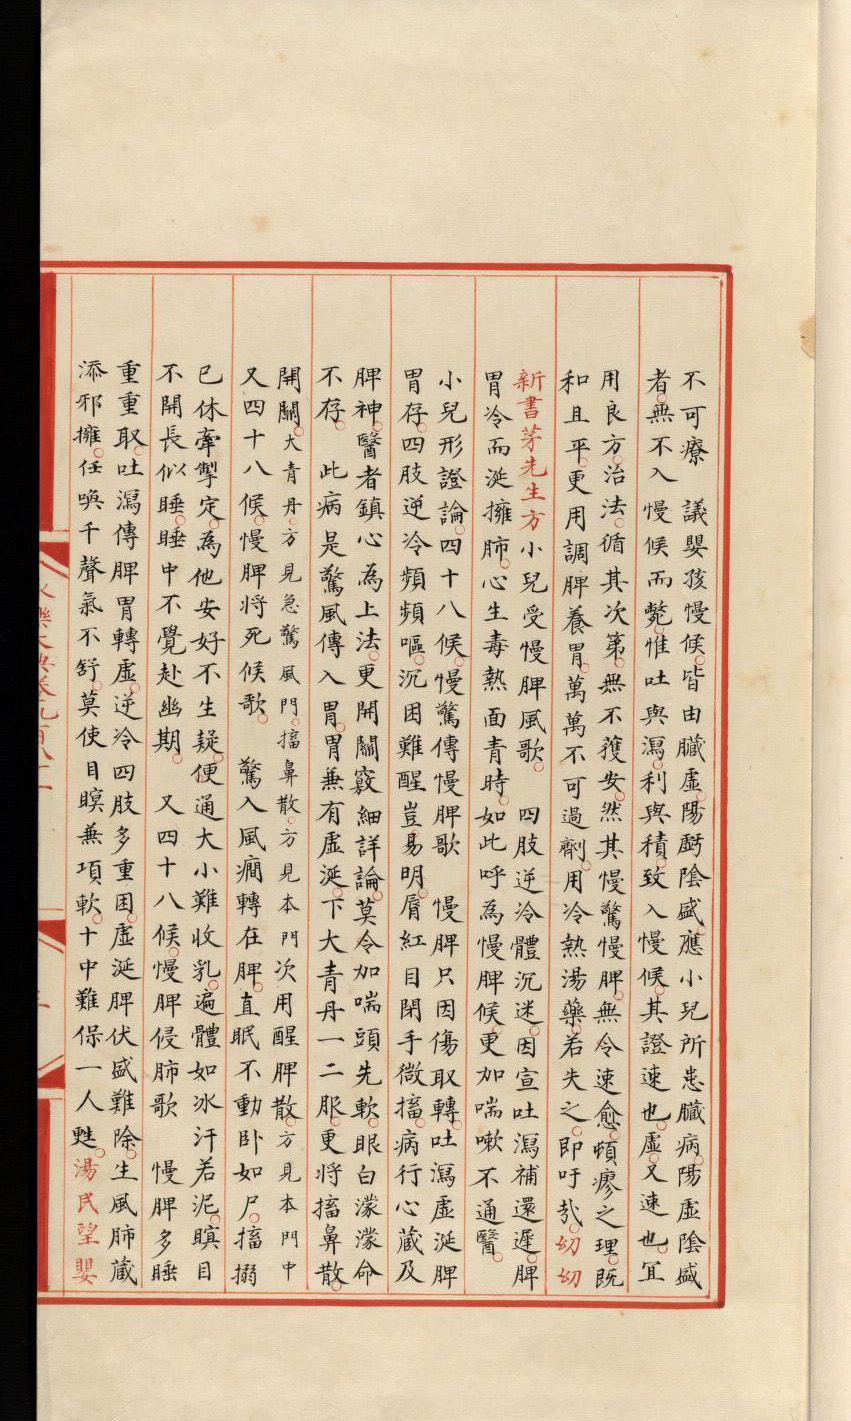 不可療　議嬰孩慢候皆由臟虛陽虧陰盛應小兒所患臟病陽虛陰盛
者無不入慢候而斃惟吐與瀉利與積致入慢候其證速也虛又速也宜
用良方治法循其次第無不獲安然其慢驚慢脾無令速愈頓瘳之理既
和且平更用調脾養胃萬萬不可過劑用冷熱湯藥若失之即吁哉幼幼
新書茅先生方小兒受慢脾風歌　四肢逆冷體沉迷因宣吐瀉補還遲脾
胃冷而涎擁肺心生毒熱面青時如此呼為慢脾候更加喘嗽不通醫
小兒形證論四十八候慢驚傳慢脾歌　慢脾只因傷取轉吐瀉虛涎脾
胃存四肢逆冷頻頻嘔沉困難醒豈易明脣紅目閉手微搐病行心蔵及
脾神醫者鎮心為上法更開關竅細詳論莫令加喘頭先軟眼白濛濛命
不存　此病是驚風傳入胃胃兼有虛涎下大青丹一二服更將搐鼻散
開關大青丹方見急驚風門搐鼻散方見本門次用醒脾散方見本門中
又四十八候慢脾將死候歌　驚入風癇轉在脾直眠不動卧如尸搐搦
已休牽掣定為他安好不生疑便通大小難收乳遍體如冰汗若泥瞑目
不開長似睡睡中不覺赴幽期　又四十八候慢脾侵肺歌　慢脾多睡
重重取吐瀉傳脾胃轉虛逆冷四肢多重困虛涎脾伏盛難除生風肺蔵
添邪擁任喚千聲氣不舒莫使目瞑兼項軟十中難保一人甦湯氏望嬰